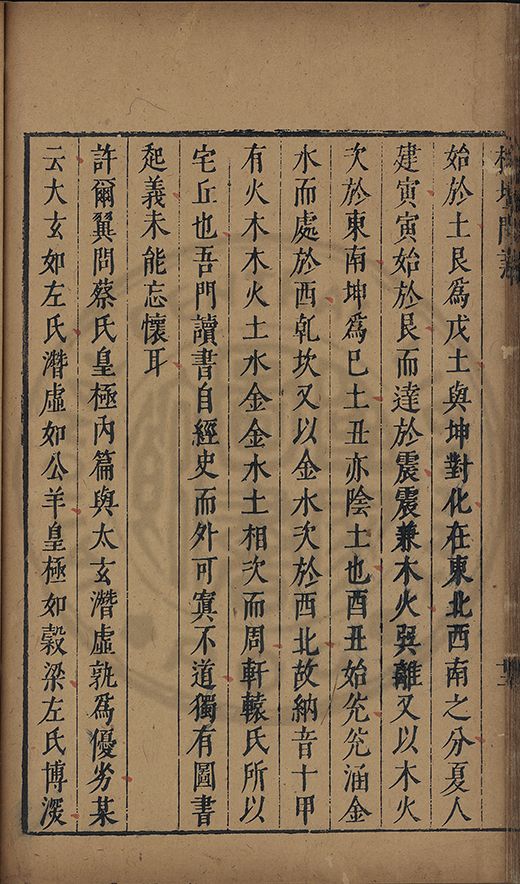 始於土艮爲戊土與坤對化在東北西南之分夏人
建寅寅始於艮而達於震震兼木火巽離又以木火
次於東南坤爲巳土丑亦陰土也酉丑始兊兊涵金
水而處於西乹坎又以金水次於西北故納音十甲
有火木木火土水金金水土相次而周軒轅氏所以
宅丘也吾門讀書自經史而外可寘不道獨有圖書
起義未能忘懷耳
許爾翼問蔡氏皇極內篇與太玄潛虛孰爲優劣某
云大玄如左氏潛虛如公羊皇極如榖梁左氏博深